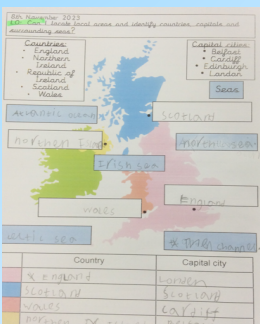 8th November 2023
L.O: Can I locate local areas and identify countries, capitals and
surrounding seas?
Countries:
• England
• Northern
Ireland
• Republic of
Ireland
• Scotland
• Wales
Capital cities:
• Belfast
• Cardiff
• Edinburgh
• London
Seas
Scotland
Irish sea
England
wales
sea
Country
Capital city
England
London
Scotland
Scotland
wales
cardiff
northern